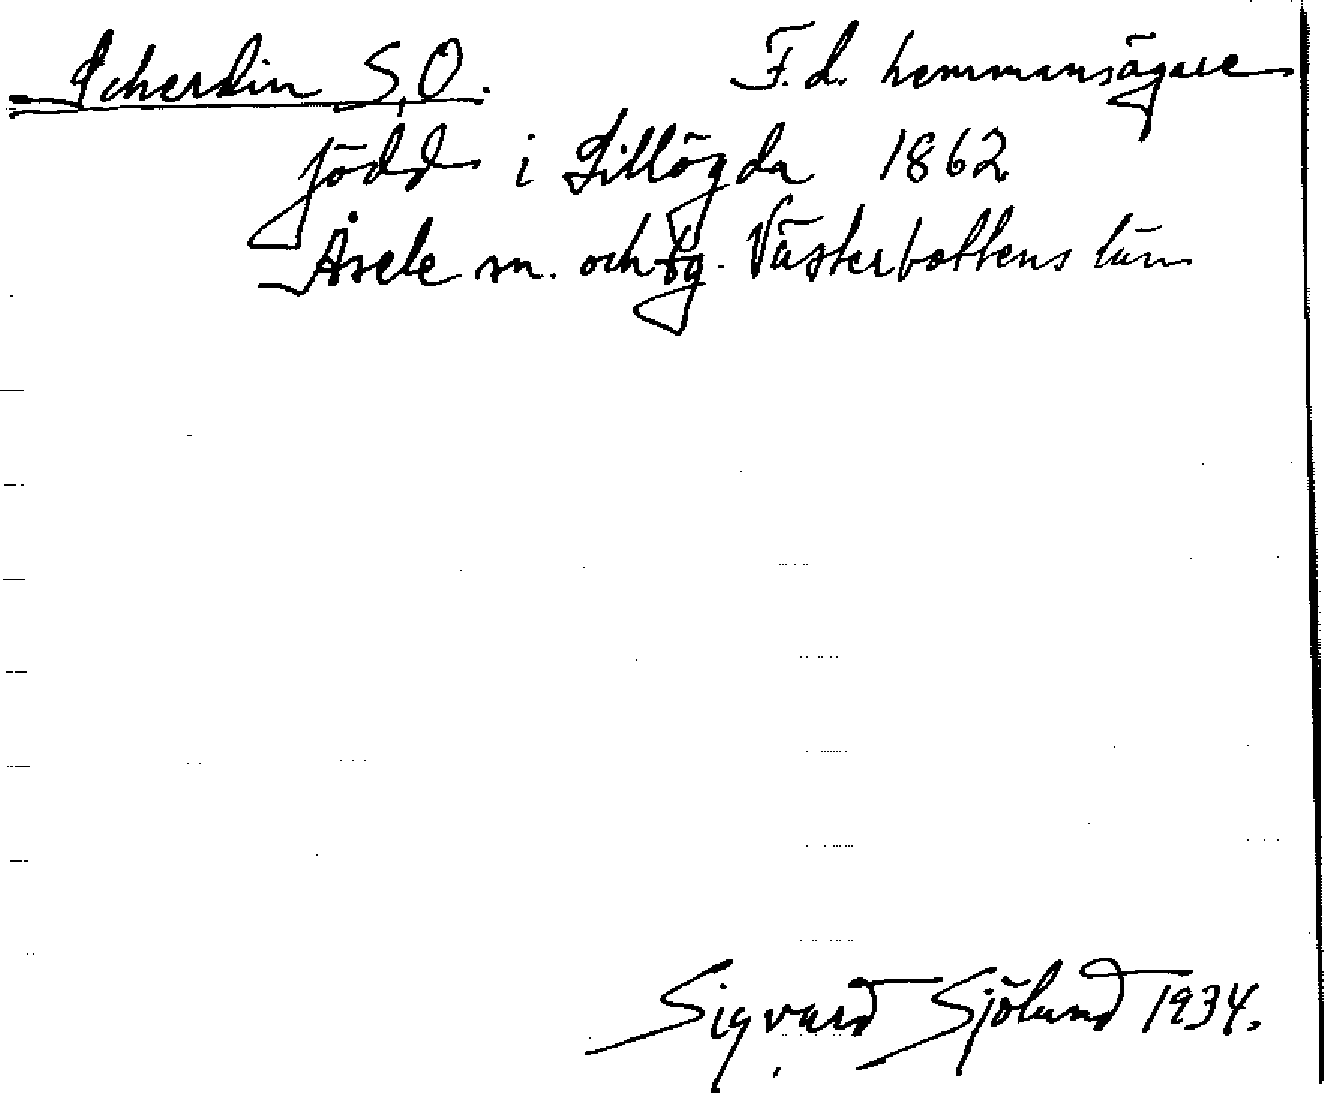 Scherdin S,O. F.d. hemmansägare
född i Lillögda 1862
Åsele sn. och tg. Västerbottens län
Sigvard Sjölund 1934.